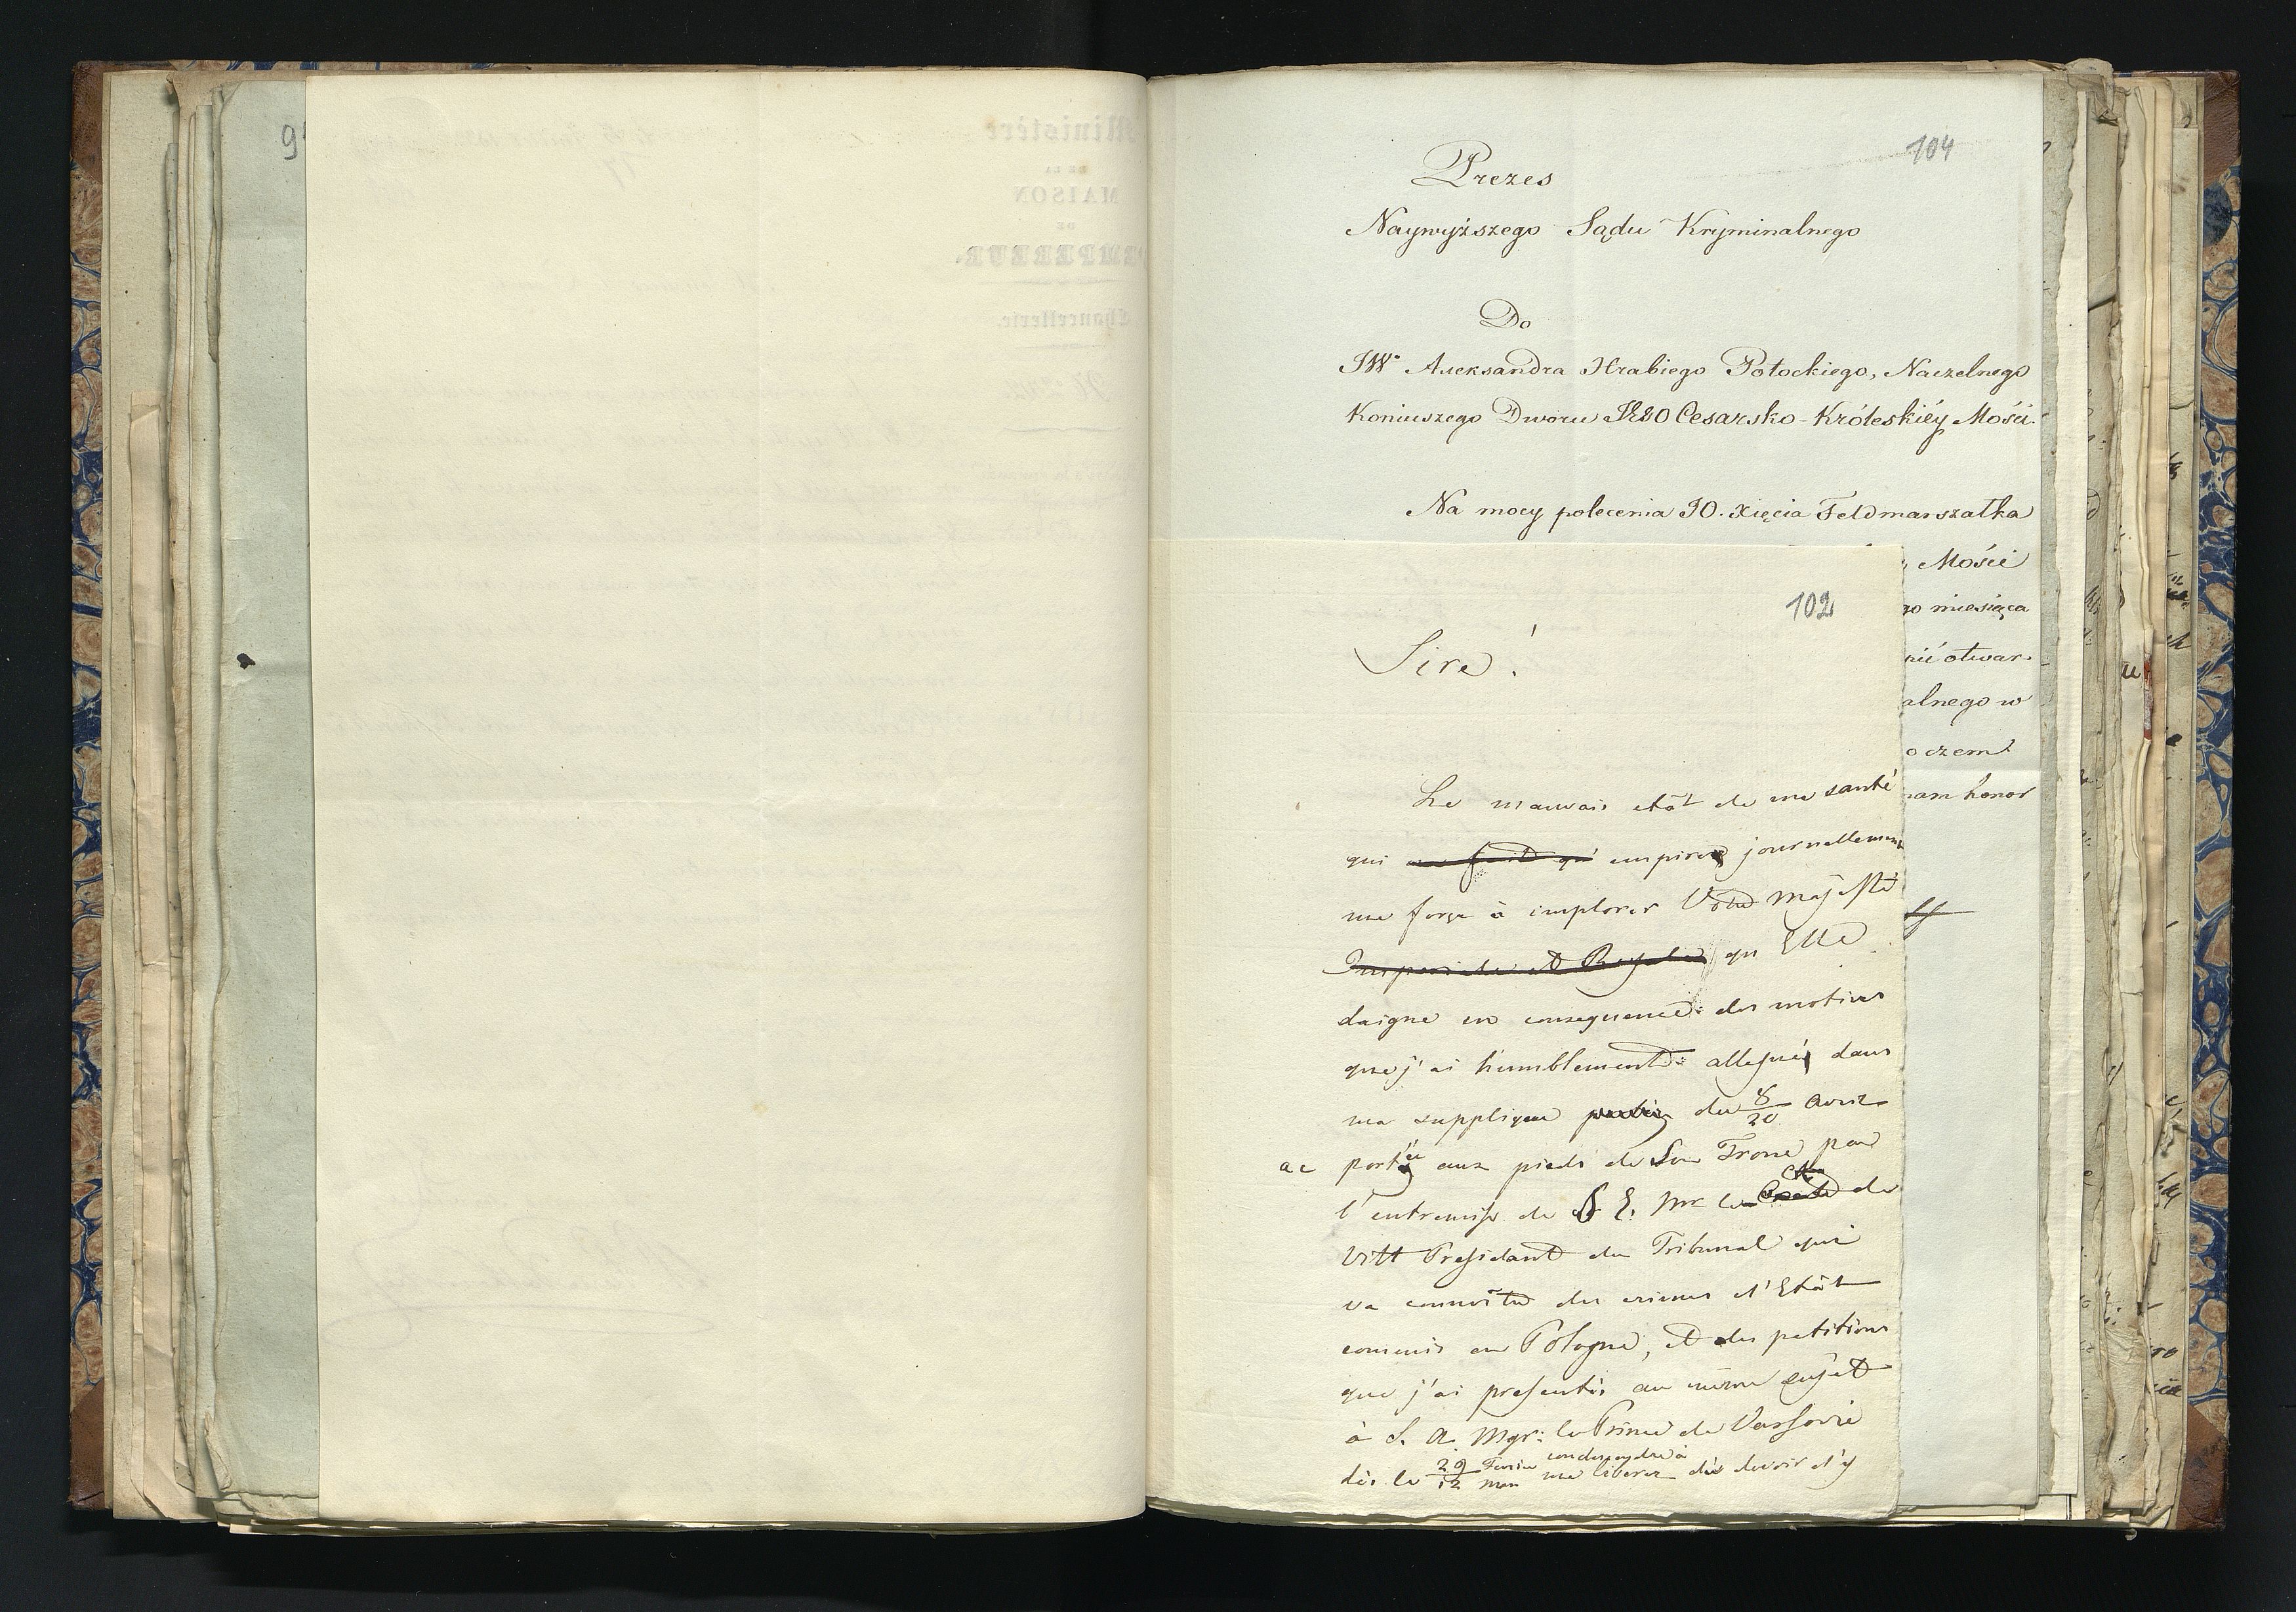 9
104
Prezes
Naywyższego Sądu Kryminalnego
Do
JWo Alexandra Hrabiego Potockiego, Naczelnego
Koniuszego Dworu JEGO Cesarsko-Królewskiéy Mości.
Na mocy polecenia JO. Xięcia Feldmarszałka
Mości
go miesiąca
nié otwar-
alnego w
o czem
mam honor
102
Sire!
Le mauvais etât de ma santé
qui empire journellement
me force à implorer Votre Majesté
Imperiale et Royale qu'Elle
daigne en consequence des motives
que j'ai humblement allegués dans
ma supplique du 8/20 Avril
ac portée aux pieds de Son Trone par
l'entremise de S. E. Mr le Cte de
Vitt President du Tribunal qui
va connoître des crimes d'Etât
commis en Pologne, et des petitions
que j'ai presentés au même sujet
à S. A. Mgr: le Prince de Varsovie
condescendre à
dès le 29/12 Mars me liberer du devoir d'y